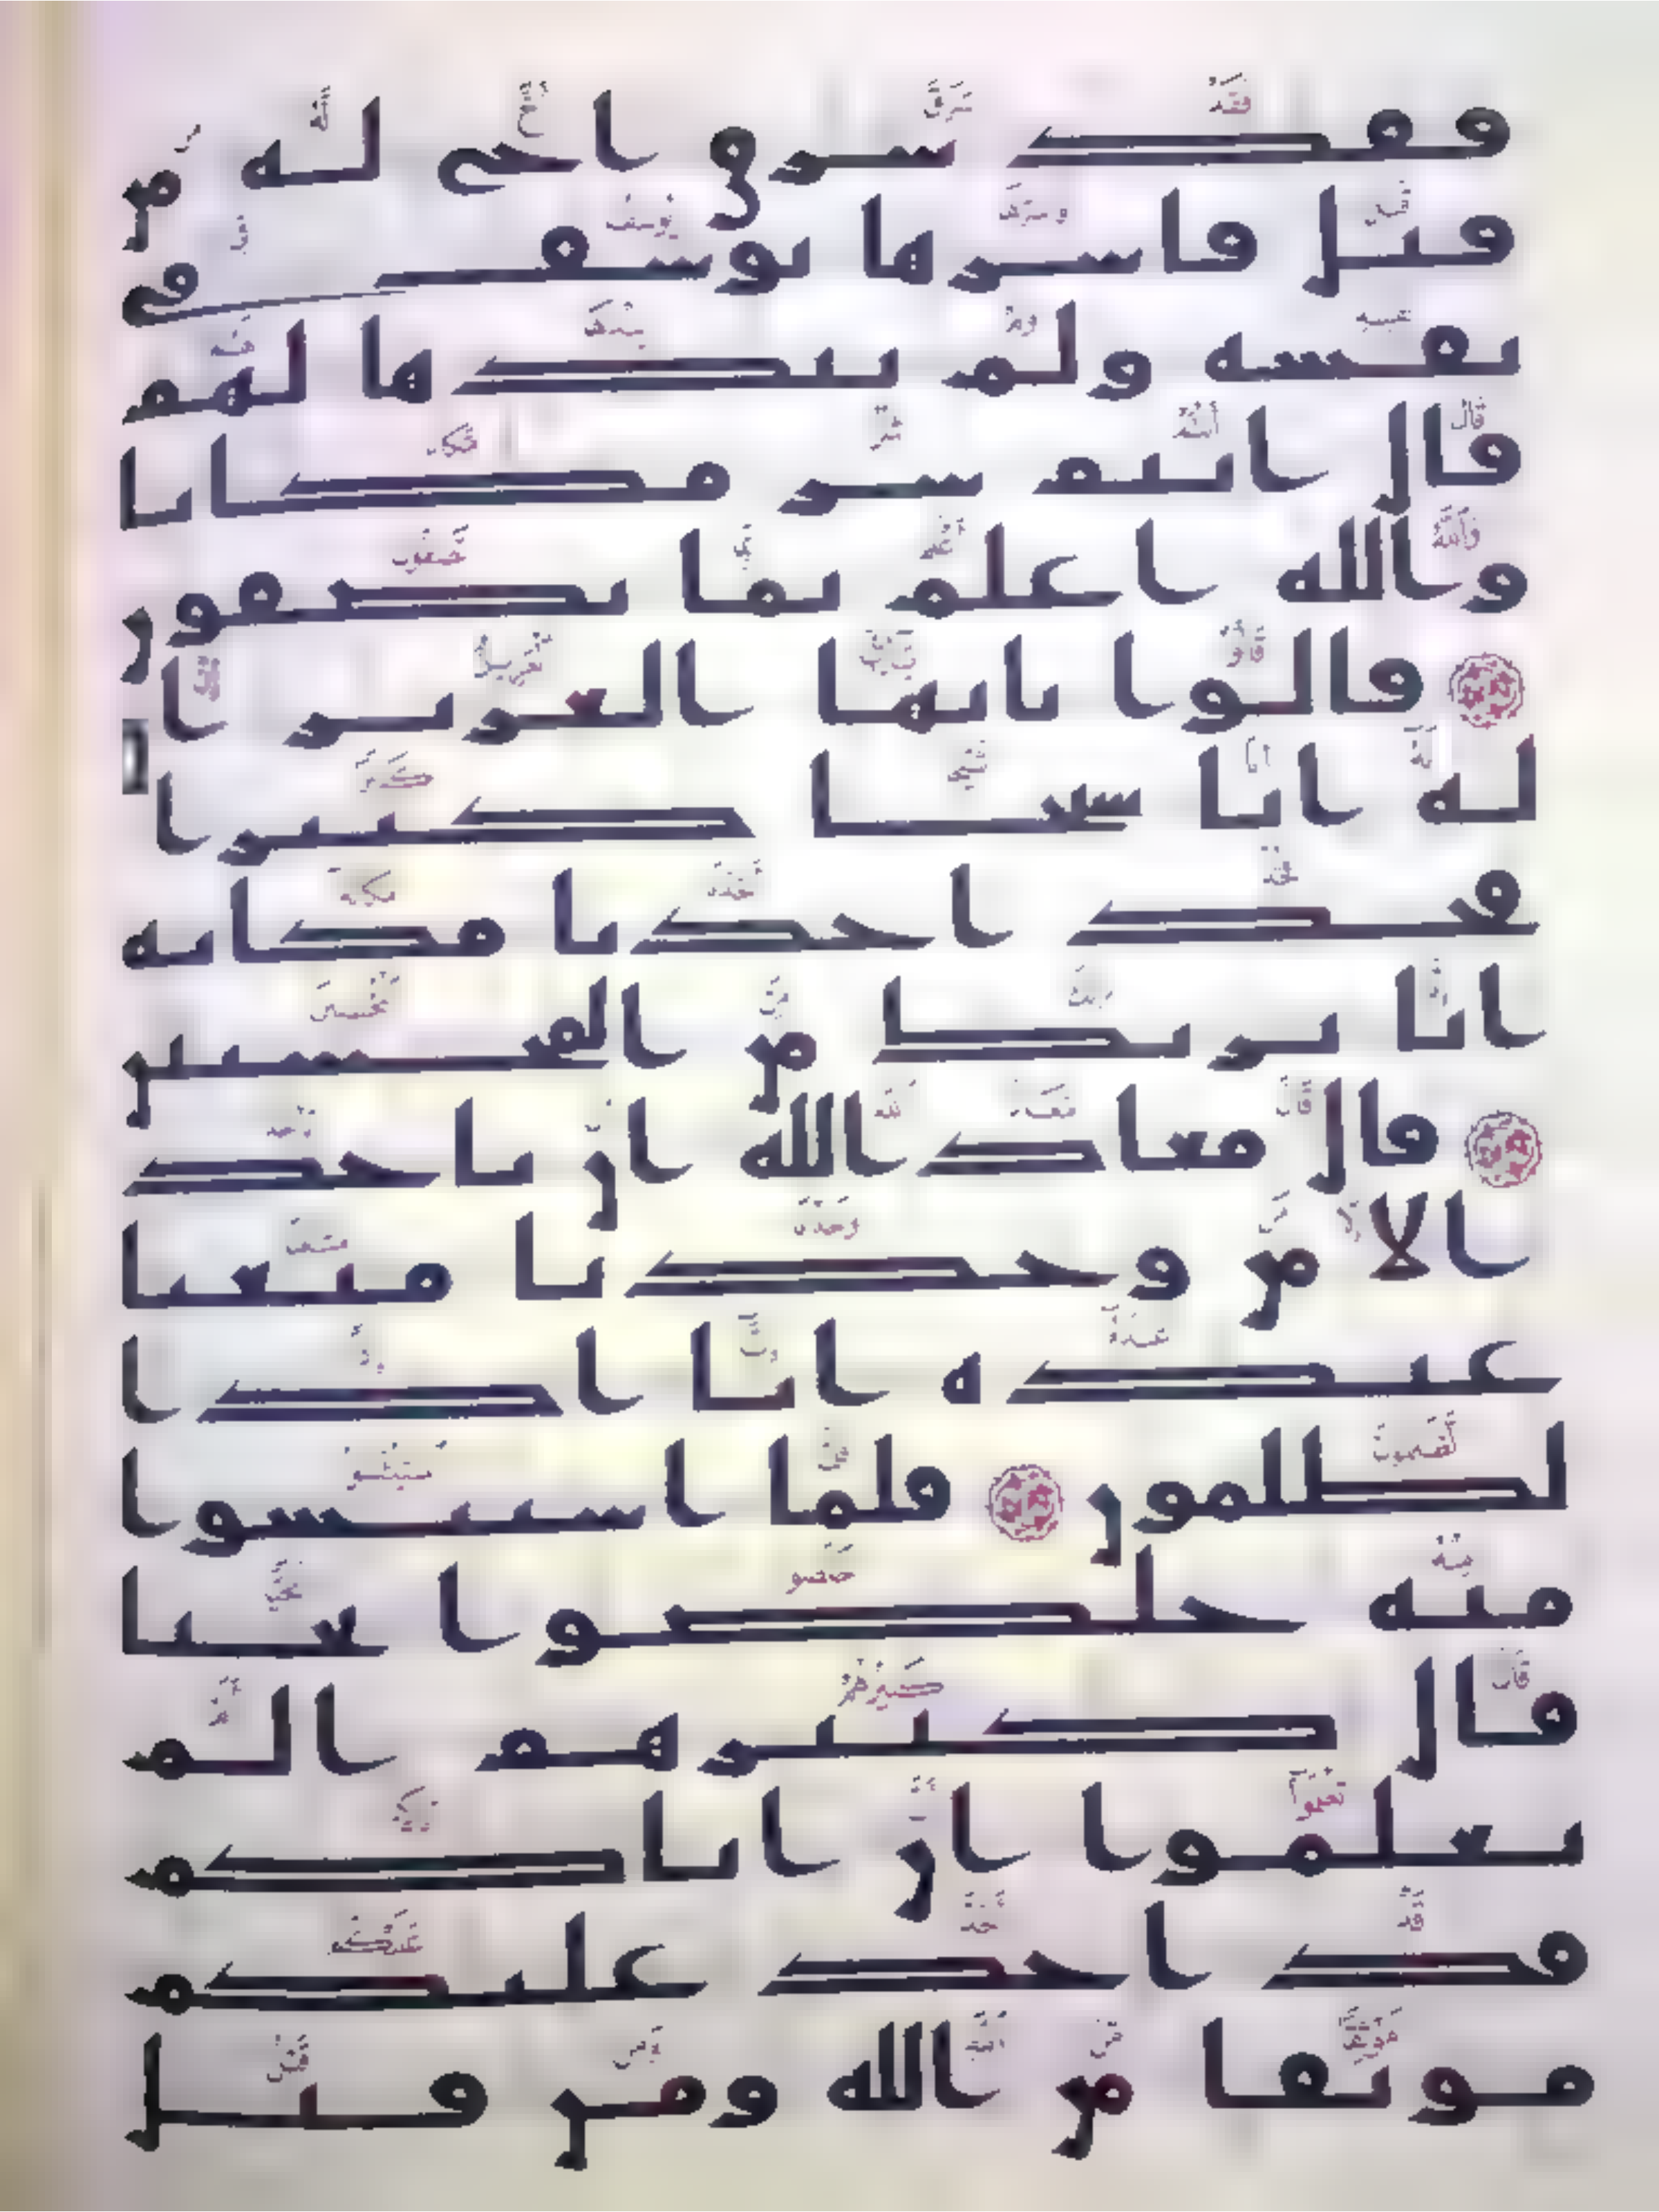 فقد سرق اخ له من
قبل فاسرها يوسف في
نفسه ولم يبدها لهم
قال انتم شر مكانا
والله اعلم بما تصفون
قالوا يايها العزيز ان
له ابا شيخا كبيرا
فخذ احدنا مكانه
انا نريك من المحسنين
قال معاذ الله ان ناخذ
الا من وجدنا متعنا
عنده انا اذا ا
لظلمون فلما استيسوا
منه خلصوا نجيا
قال كبيرهم الم
تعلموا ان اباكم
قد اخذ عليكم
موثقا من الله ومن قبل